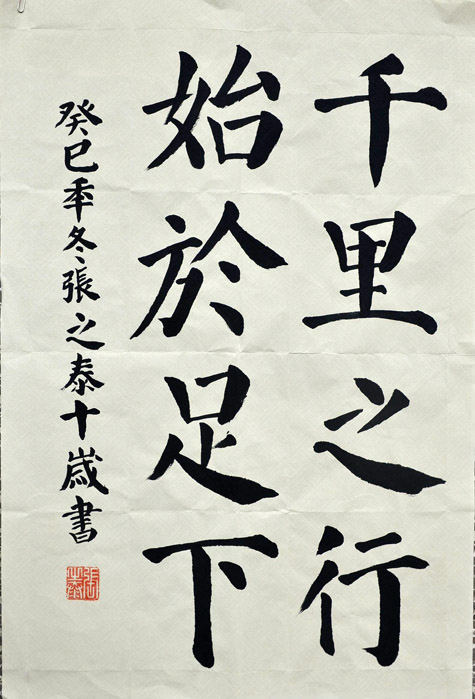 千里之行
始於足下
癸巳年冬張之泰十歲書